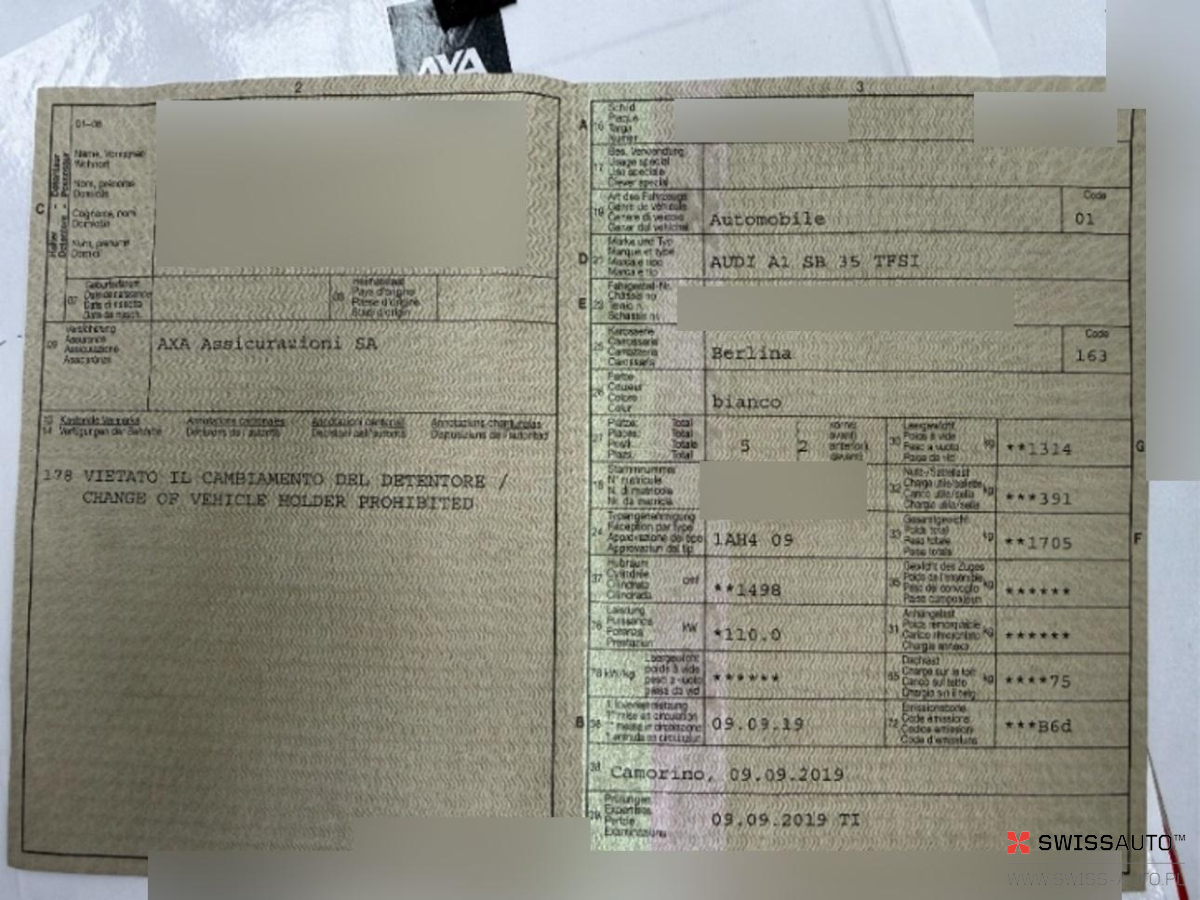 AXA
2
3
C
01-06
Name, Vornamen
Wohnort
Nom, prénoms
Domicile
Cognome, nomi
Domicilio
Num, prenums
Domicil
07
08
Pays d'origine
Paese d'origine
09
Versicherung
Assurance
Assicurazione
AXA Assicurazioni SA
13
14
Kantonale Vermerke
Verfügungen der Behörde
Annotations cantonales
Décisions de l'autorité
Annotazioni cantonali
Decisioni dell'autorità
Annotaziuns chantunalas
Disposiziuns da l'autoritad
178 VIETATO IL CAMBIAMENTO DEL DETENTORE /
CHANGE OF VEHICLE HOLDER PROHIBITED
A
Schild
Plaque
Targa
Numer
Bes. Verwendung
Usage spécial
Uso speciale
Diever spezial
19
Art des Fahrzeugs
Genre de véhicule
Genere di veicolo
Gener dal vehichel
Automobile
Code
01
D
Marke und Typ
Marque et type
Marca e tipo
Marca e tip
AUDI A1 SB 35 TFSI
E
23
Fahrgestell-Nr.
Châssis no
Telaio n.
Schassis nr.
25
Karosserie
Carrosserie
Carrozzeria
Carossaria
Berlina
Code
163
26
Farbe
Couleur
Colore
Calur
bianco
27
Plätze: Total
Places: Total
Posti: Totale
Plazs: Total
5
2
30
Leergewicht
Poids à vide
Peso a vuoto
Paisa da vid
kg
**1314
G
18
Stammnummer
N° matricule
N. di matricola
Nr. da matricla
32
kg
***391
24
Typengenehmigung
Réception par type
Approvazione del tipo
Approvaziun dal tip
1AH4 09
33
Gesamtgewicht
Poids total
Peso totale
Paisa totala
kg
**1705
F
37
Hubraum
Cylindrée
Cilindrata
Cilindrada
cm³
**1498
35
Gewicht des Zuges
Poids de l'ensemble
Peso del convoglio
Paisa cumposiziun
kg
******
76
Leistung
Puissance
Potenza
Prestaziun
kW
*110.0
31
Anhängelast
Poids remorquable
Carico rimorchiato
Chargia annexa
kg
******
78 kW/kg
Leergewicht
poids à vide
peso a vuoto
paisa da vid
******
55
Dachlast
Charge sur le toit
Carico sul tetto
Chargia sin il tetg
kg
****75
B
36
09.09.19
72
Emissionscode
Code émissions
Codice emissioni
Code d'emissiuns
***B6d
38
Camorino, 09.09.2019
39
Prüfungen
Expertises
Perizie
Examinaziuns
09.09.2019 TI
SWISSAUTO™
WWW.SWISS-AUTO.PL